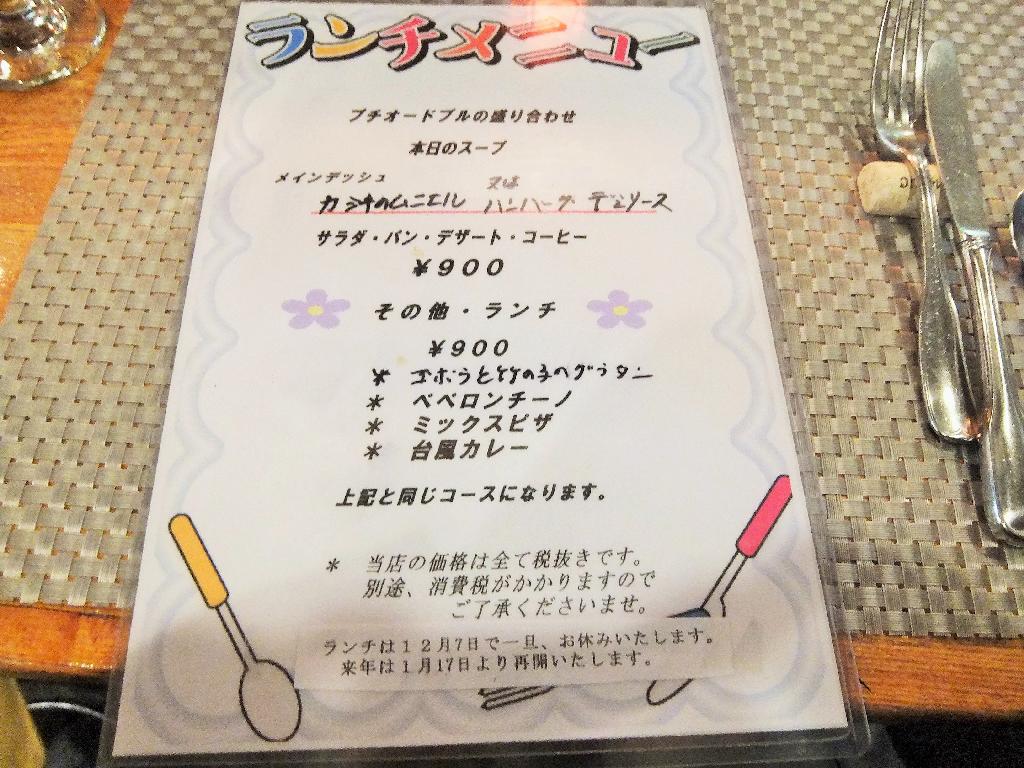 ランチメニュー
プチオードブルの盛り合わせ
本日のスープ
メインデッシュ
カジキのムニエル 又は ハンバーグ デミソース
サラダ・パン・デザート・コーヒー
￥900
その他・ランチ
￥900
＊ ゴボウと竹の子のグラタン
＊ ペペロンチーノ
＊ ミックスピザ
＊ 台風カレー
上記と同じコースになります。
＊ 当店の価格は全て税抜きです。
別途、消費税がかかりますので
ご了承くださいませ。
ランチは12月7日で一旦、お休みいたします。
来年は1月17日より再開いたします。